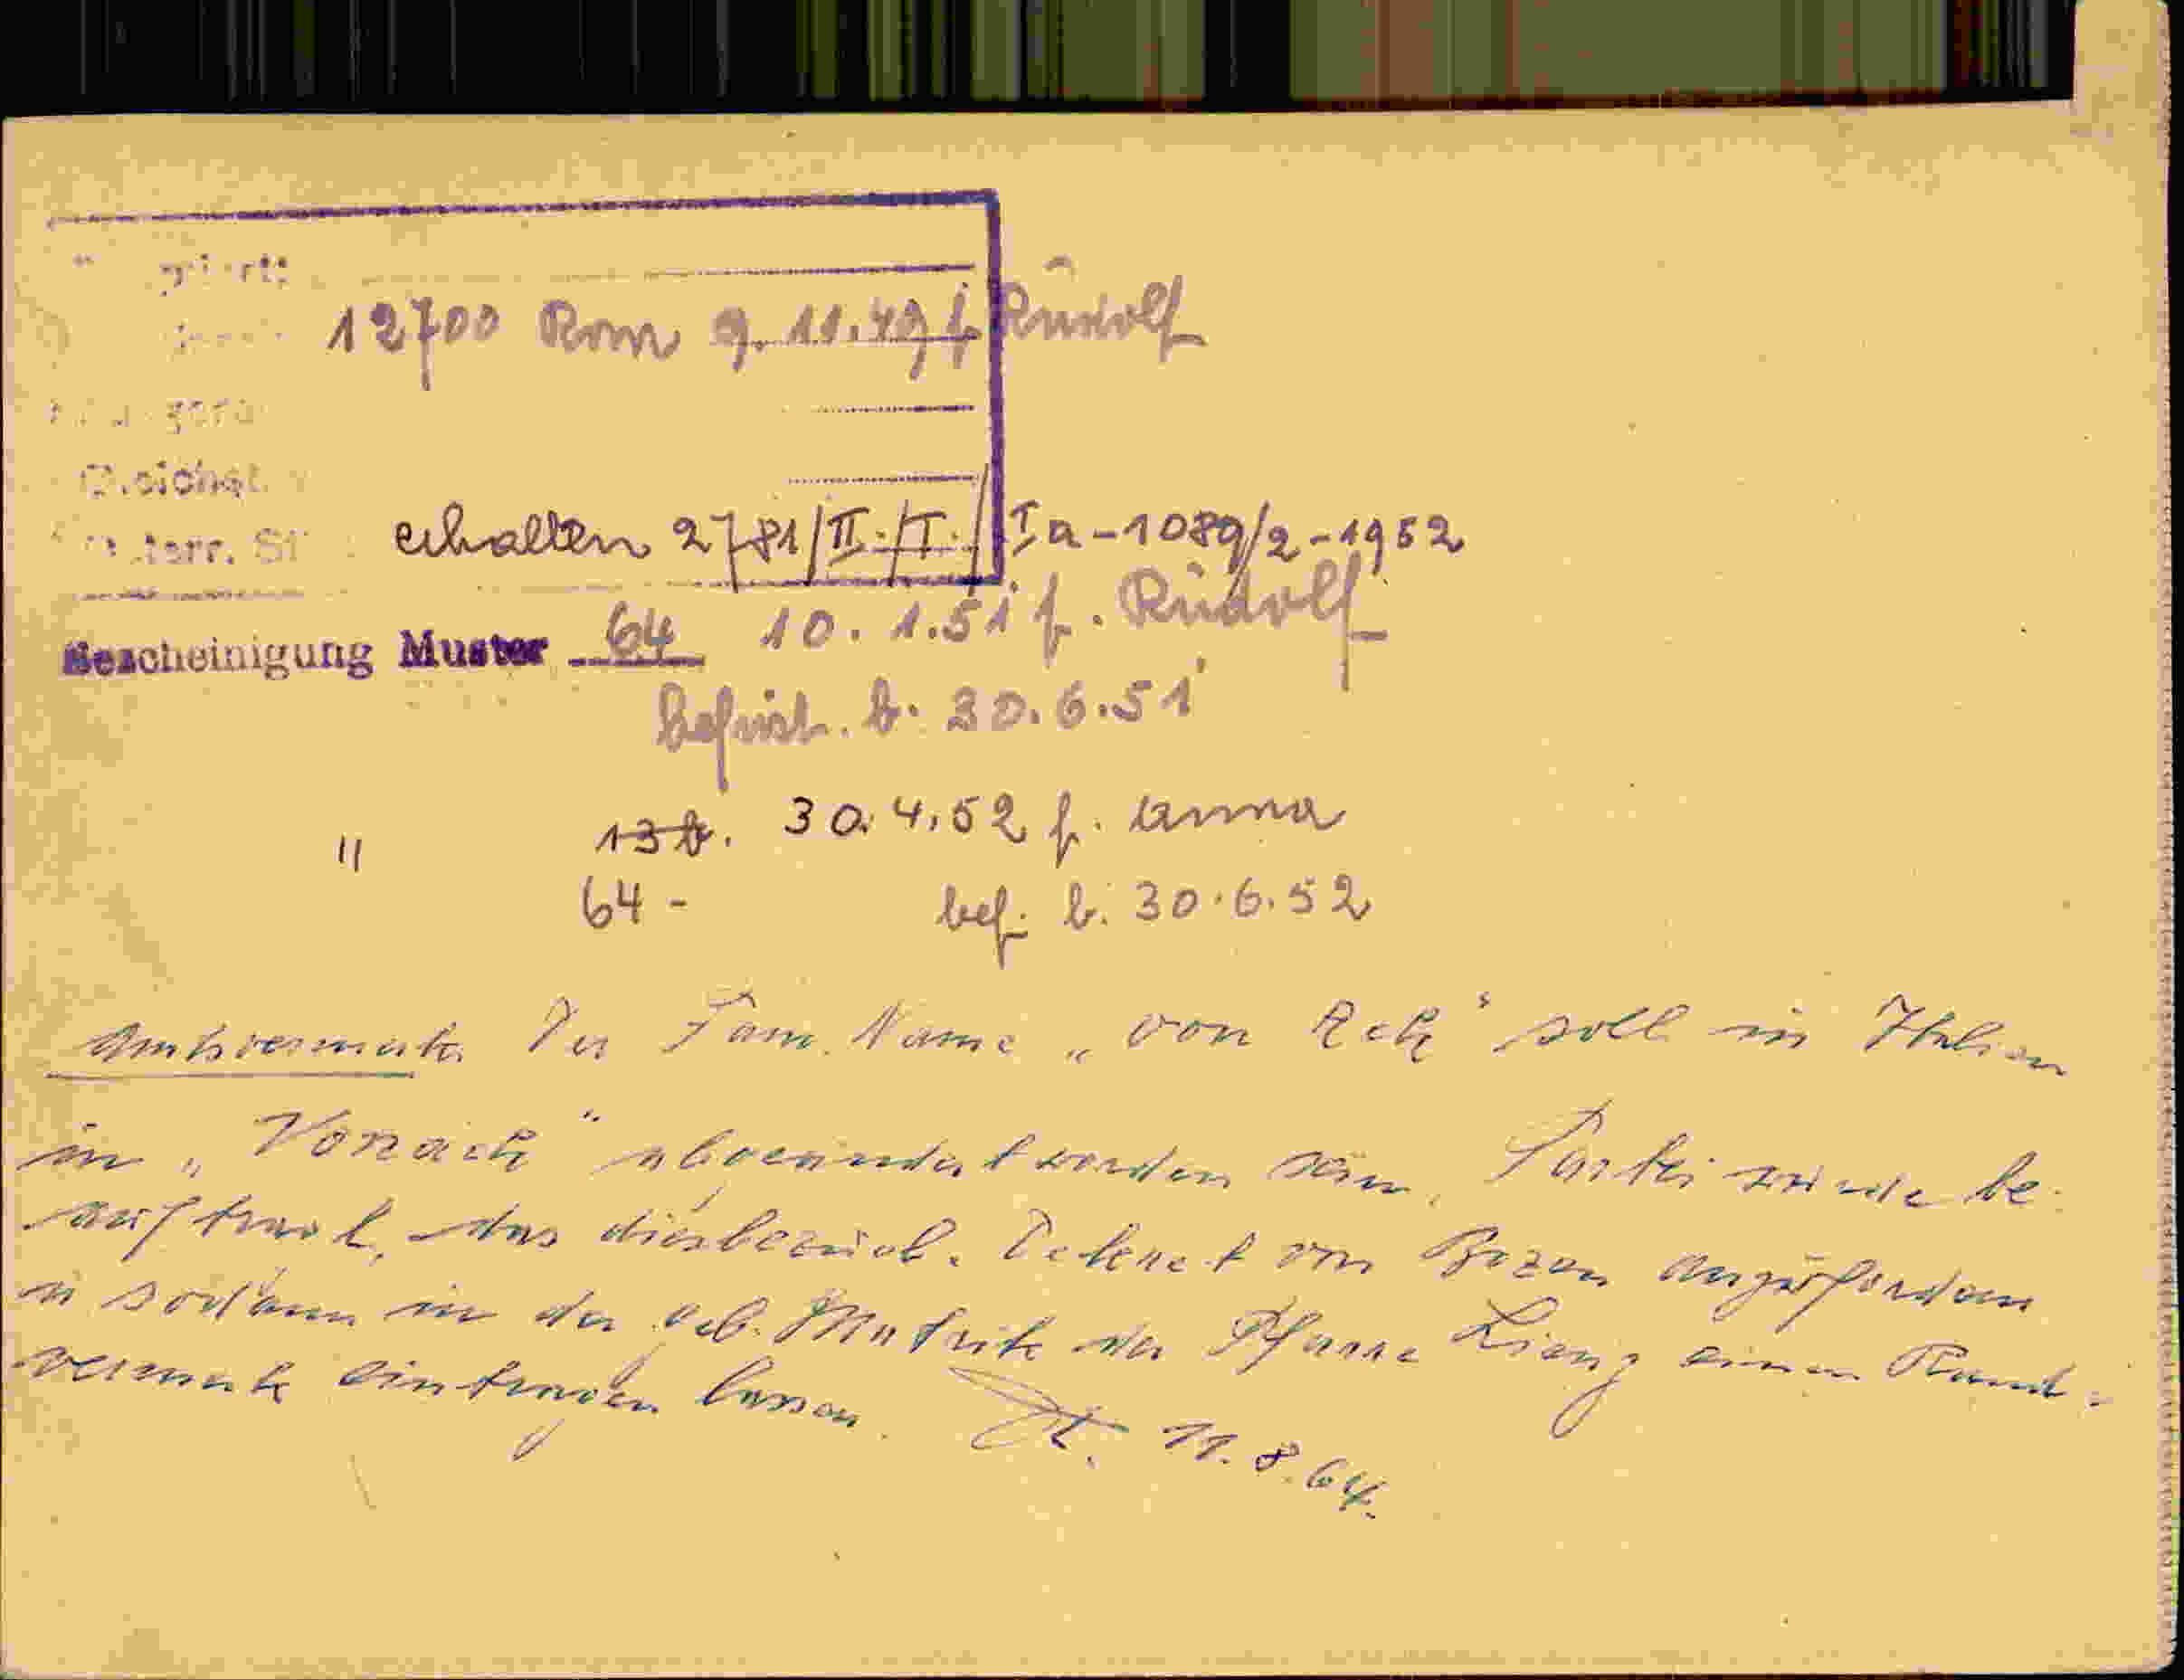 12700 Rom 9.11.49 f. Rudolf
erhalten 2781/II./I./Ia-1089/2-1952
Bescheinigung Muster 64 10.1.51 f. Rudolf
befrist. b. 30.6.51
" 13b. 30.4.52 f. Anna
64 - bef. b. 30.6.52
Amtsvermerk Der Fam. Name „von Ach" soll in Italien
in „Vonach" abgeändert worden sein. Partei wurde be-
auftragt, das diesbezügl. Dekret von Bozen anzufordern
u sodann in der geb. Matrik der Pfarre Lienz einen Rand-
vermerk eintragen lassen. 11.8.64.